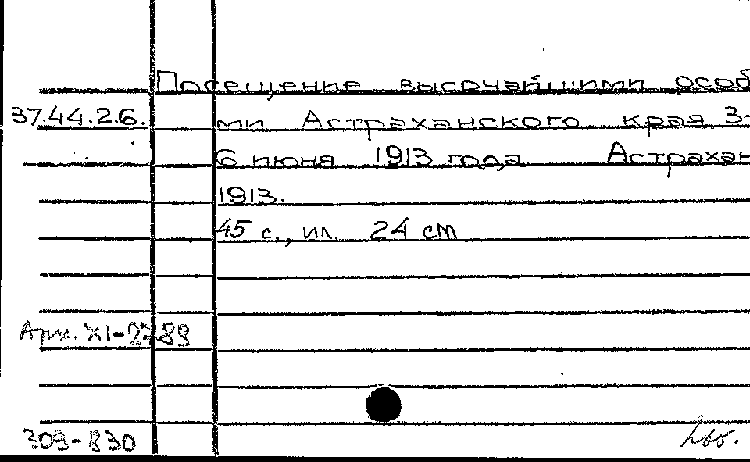 Посещение высочайшими особ
37.44.26. ми Астраханского края 3-
6 июня 1913 года Астрахан
1913.
45 с., ил. 24 см
Арх. XI-2789
309-830